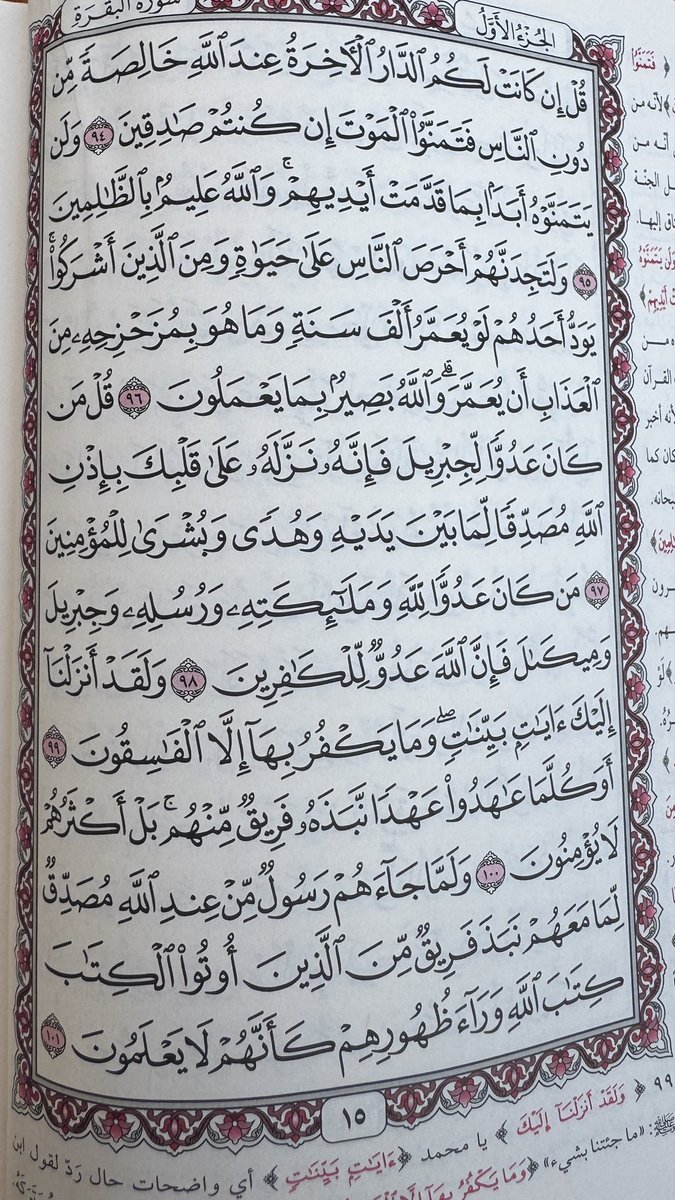 سورة البقرة
الجزء الأول
قُلْ إِن كَانَتْ لَكُمُ ٱلدَّارُ ٱلْأَخِرَةُ عِندَ ٱللَّهِ خَالِصَةً مِّن
دُونِ ٱلنَّاسِ فَتَمَنَّوُا۟ ٱلْمَوْتَ إِن كُنتُمْ صَٰدِقِينَ ٩٤ وَلَن
يَتَمَنَّوْهُ أَبَدًۢا بِمَا قَدَّمَتْ أَيْدِيهِمْ ۚ وَٱللَّهُ عَلِيمٌۢ بِٱلظَّٰلِمِينَ
٩٥ وَلَتَجِدَنَّهُمْ أَحْرَصَ ٱلنَّاسِ عَلَىٰ حَيَوٰةٍ وَمِنَ ٱلَّذِينَ أَشْرَكُوا۟ ۚ
يَوَدُّ أَحَدُهُمْ لَوْ يُعَمَّرُ أَلْفَ سَنَةٍ وَمَا هُوَ بِمُزَحْزِحِهِۦ مِنَ
ٱلْعَذَابِ أَن يُعَمَّرَ ۗ وَٱللَّهُ بَصِيرٌۢ بِمَا يَعْمَلُونَ ٩٦ قُلْ مَن
كَانَ عَدُوًّا لِّجِبْرِيلَ فَإِنَّهُۥ نَزَّلَهُۥ عَلَىٰ قَلْبِكَ بِإِذْنِ
ٱللَّهِ مُصَدِّقًا لِّمَا بَيْنَ يَدَيْهِ وَهُدًى وَبُشْرَىٰ لِلْمُؤْمِنِينَ
٩٧ مَن كَانَ عَدُوًّا لِّلَّهِ وَمَلَٰٓئِكَتِهِۦ وَرُسُلِهِۦ وَجِبْرِيلَ
وَمِيكَىٰلَ فَإِنَّ ٱللَّهَ عَدُوٌّ لِّلْكَٰفِرِينَ ٩٨ وَلَقَدْ أَنزَلْنَآ
إِلَيْكَ ءَايَٰتٍۭ بَيِّنَٰتٍ ۖ وَمَا يَكْفُرُ بِهَآ إِلَّا ٱلْفَٰسِقُونَ ٩٩
أَوَكُلَّمَا عَٰهَدُوا۟ عَهْدًا نَّبَذَهُۥ فَرِيقٌ مِّنْهُم ۚ بَلْ أَكْثَرُهُمْ
لَا يُؤْمِنُونَ ١٠٠ وَلَمَّا جَآءَهُمْ رَسُولٌ مِّنْ عِندِ ٱللَّهِ مُصَدِّقٌ
لِّمَا مَعَهُمْ نَبَذَ فَرِيقٌ مِّنَ ٱلَّذِينَ أُوتُوا۟ ٱلْكِتَٰبَ
كِتَٰبَ ٱللَّهِ وَرَآءَ ظُهُورِهِمْ كَأَنَّهُمْ لَا يَعْلَمُونَ ١٠١
١٥
فَتَمَنَّوُا
لأنه من
أنه من
الجنة
إليها.
وَلَن يَتَمَنَّوْهُ
القرآن
أخبر
كان كما
٩٩ ﴿ وَلَقَدْ أَنزَلْنَآ إِلَيْكَ ﴾ يا محمد ﴿ ءَايَٰتٍ بَيِّنَٰتٍ ﴾ أي واضحات حال ردّ لقول ابن
«ما جئتنا بشيء» ﴿ وَمَا يَكْفُرُ بِهَآ